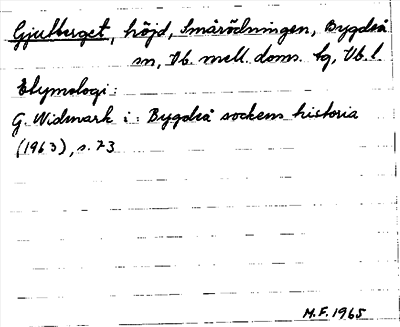 Gjutberget, höjd, Smårödningen, Bygdeå
sn, Vb. mell. doms. tg, Vb. l.
Etymologi:
G. Widmark i: Bygdeå sockens historia
(1963), s. 73
M.F. 1965